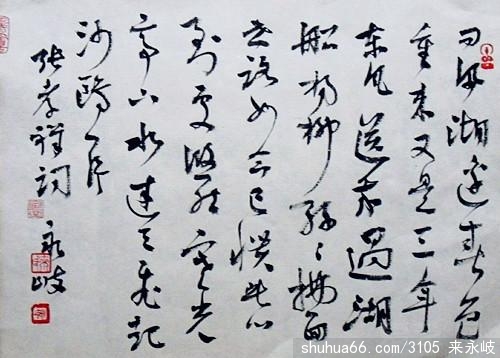 问讯湖边春色
重来又是三年
东风送我过湖
船杨柳丝丝拂面
世路如今已惯此心
到处悠然寒光
亭下水连天飞起
沙鸥一片
张孝祥词
永岐
shuhua66.com/3105 来永岐